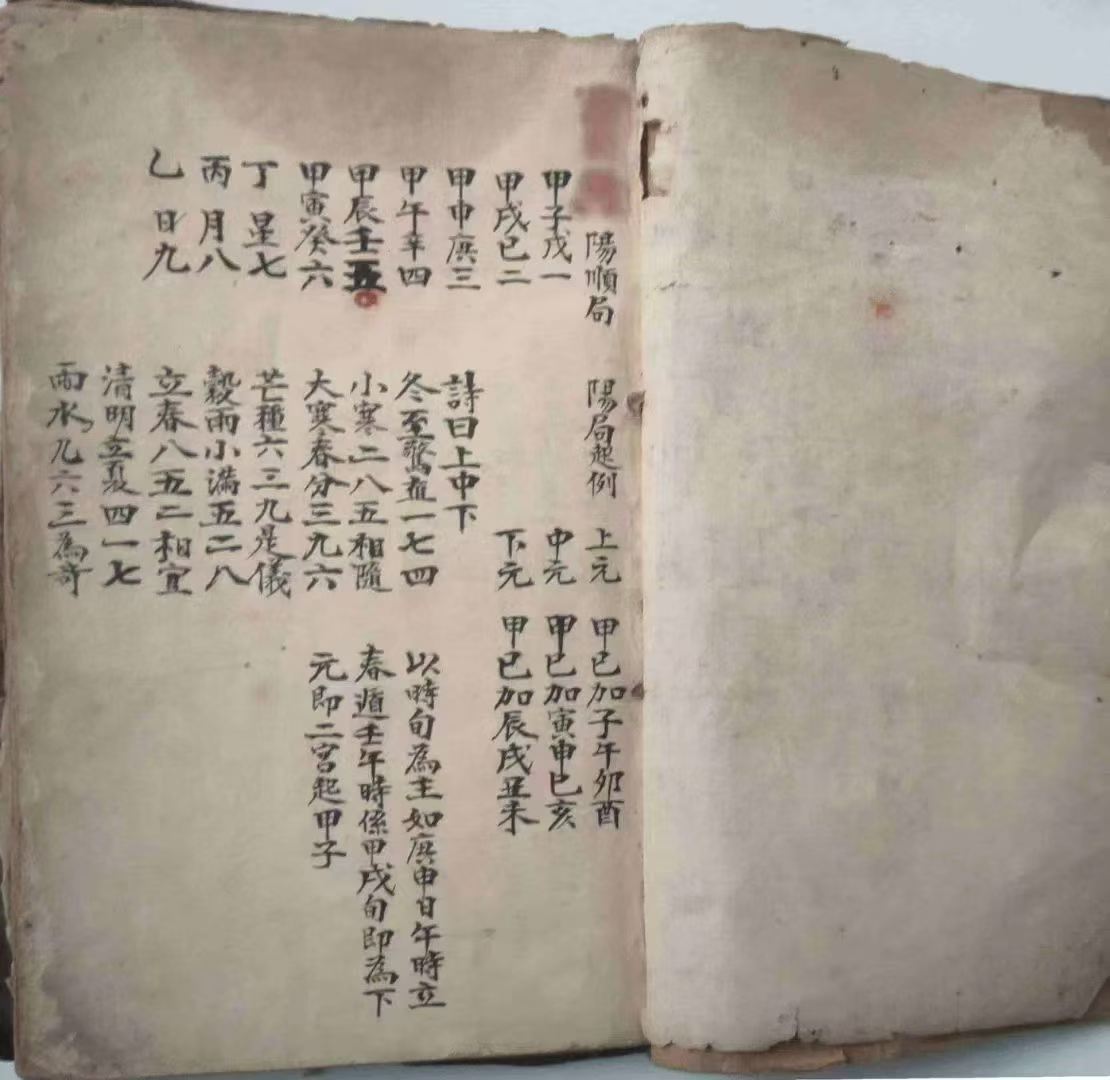 陽順局
甲子戊一
甲戌已二
甲申庚三
甲午辛四
甲辰壬五
甲寅癸六
丁星七
丙月八
乙日九
陽局起例
上元 甲已加子午卯酉
中元 甲已加寅申巳亥
下元 甲已加辰戌丑未
詩曰上中下
冬至驚蟄一七四
小寒二八五相隨
大寒春分三九六
芒種六三九是儀
穀雨小滿五二八
立春八五二相宜
清明立夏四一七
雨水九六三為奇
以時旬為主如庚申日午時立
春遁壬午時係甲戌旬即為下
元即二宮起甲子